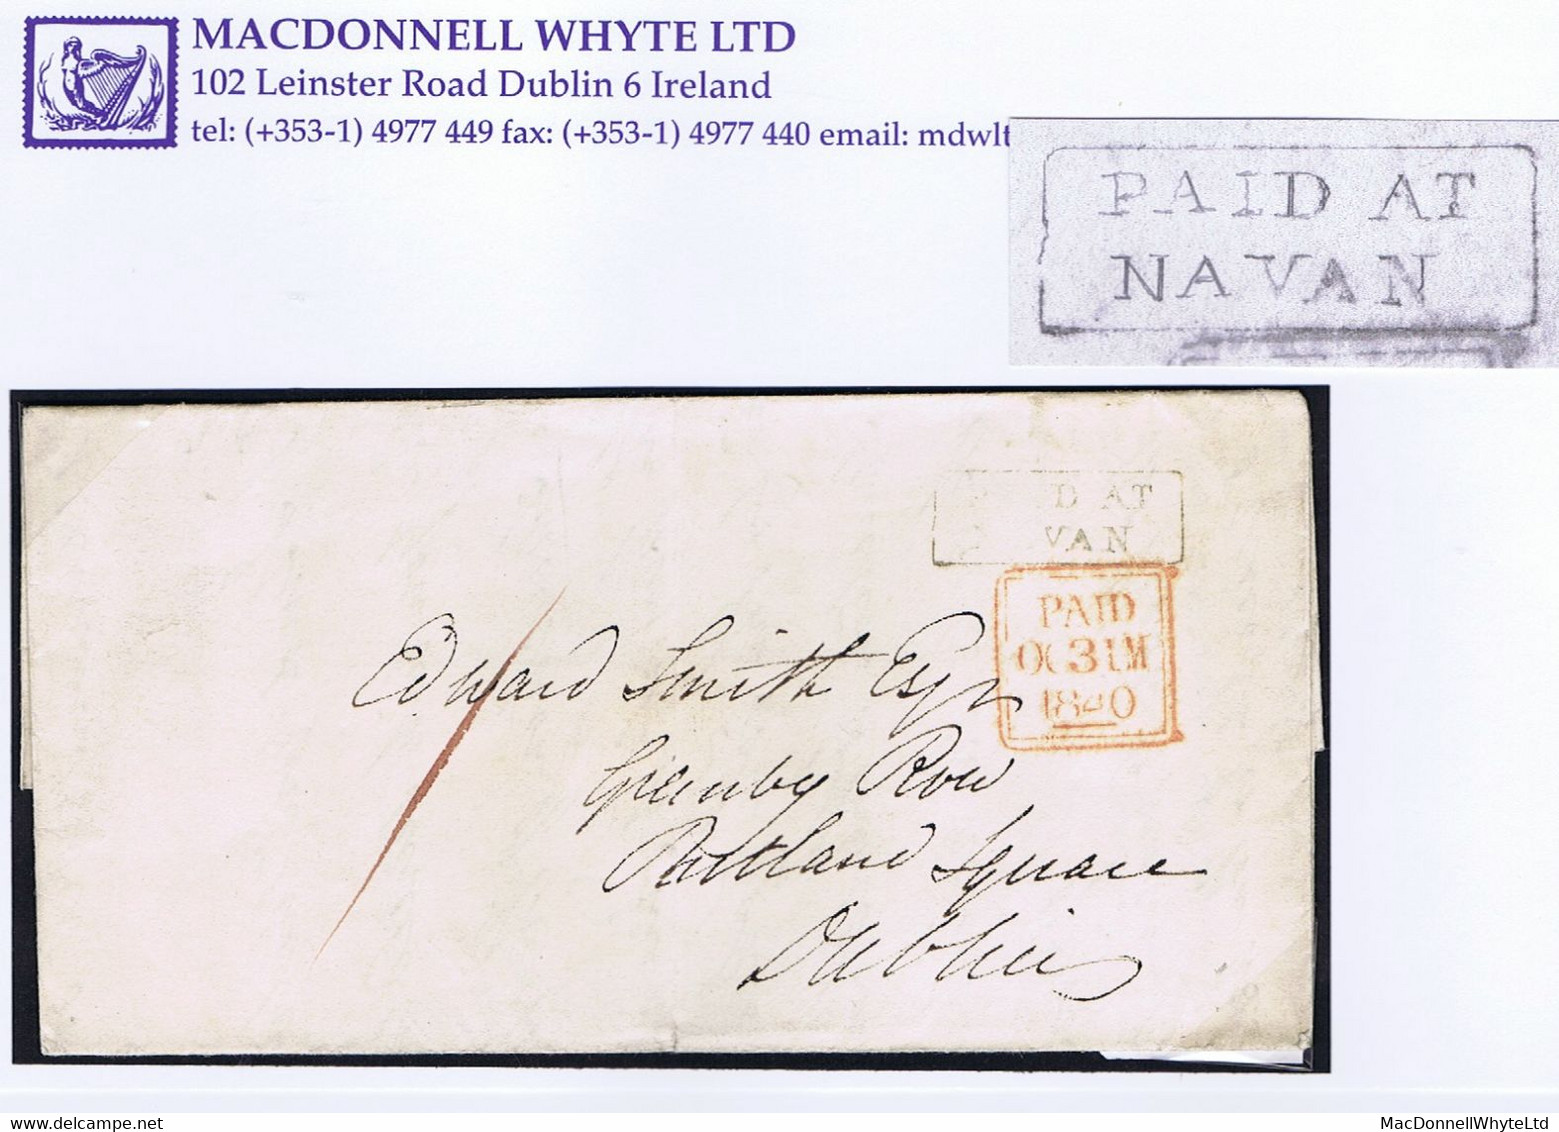 MACDONNELL WHYTE LTD
102 Leinster Road Dublin 6 Ireland
tel: (+353-1) 4977 449 fax: (+353-1) 4977 440 email: mdwlt
PAID AT
NAVAN
D AT
VAN
PAID
OC 31 M
1840
Edward Smith Esqr
Granby Row
Rutland Square
Dublin
MacDonnellWhyteLtd